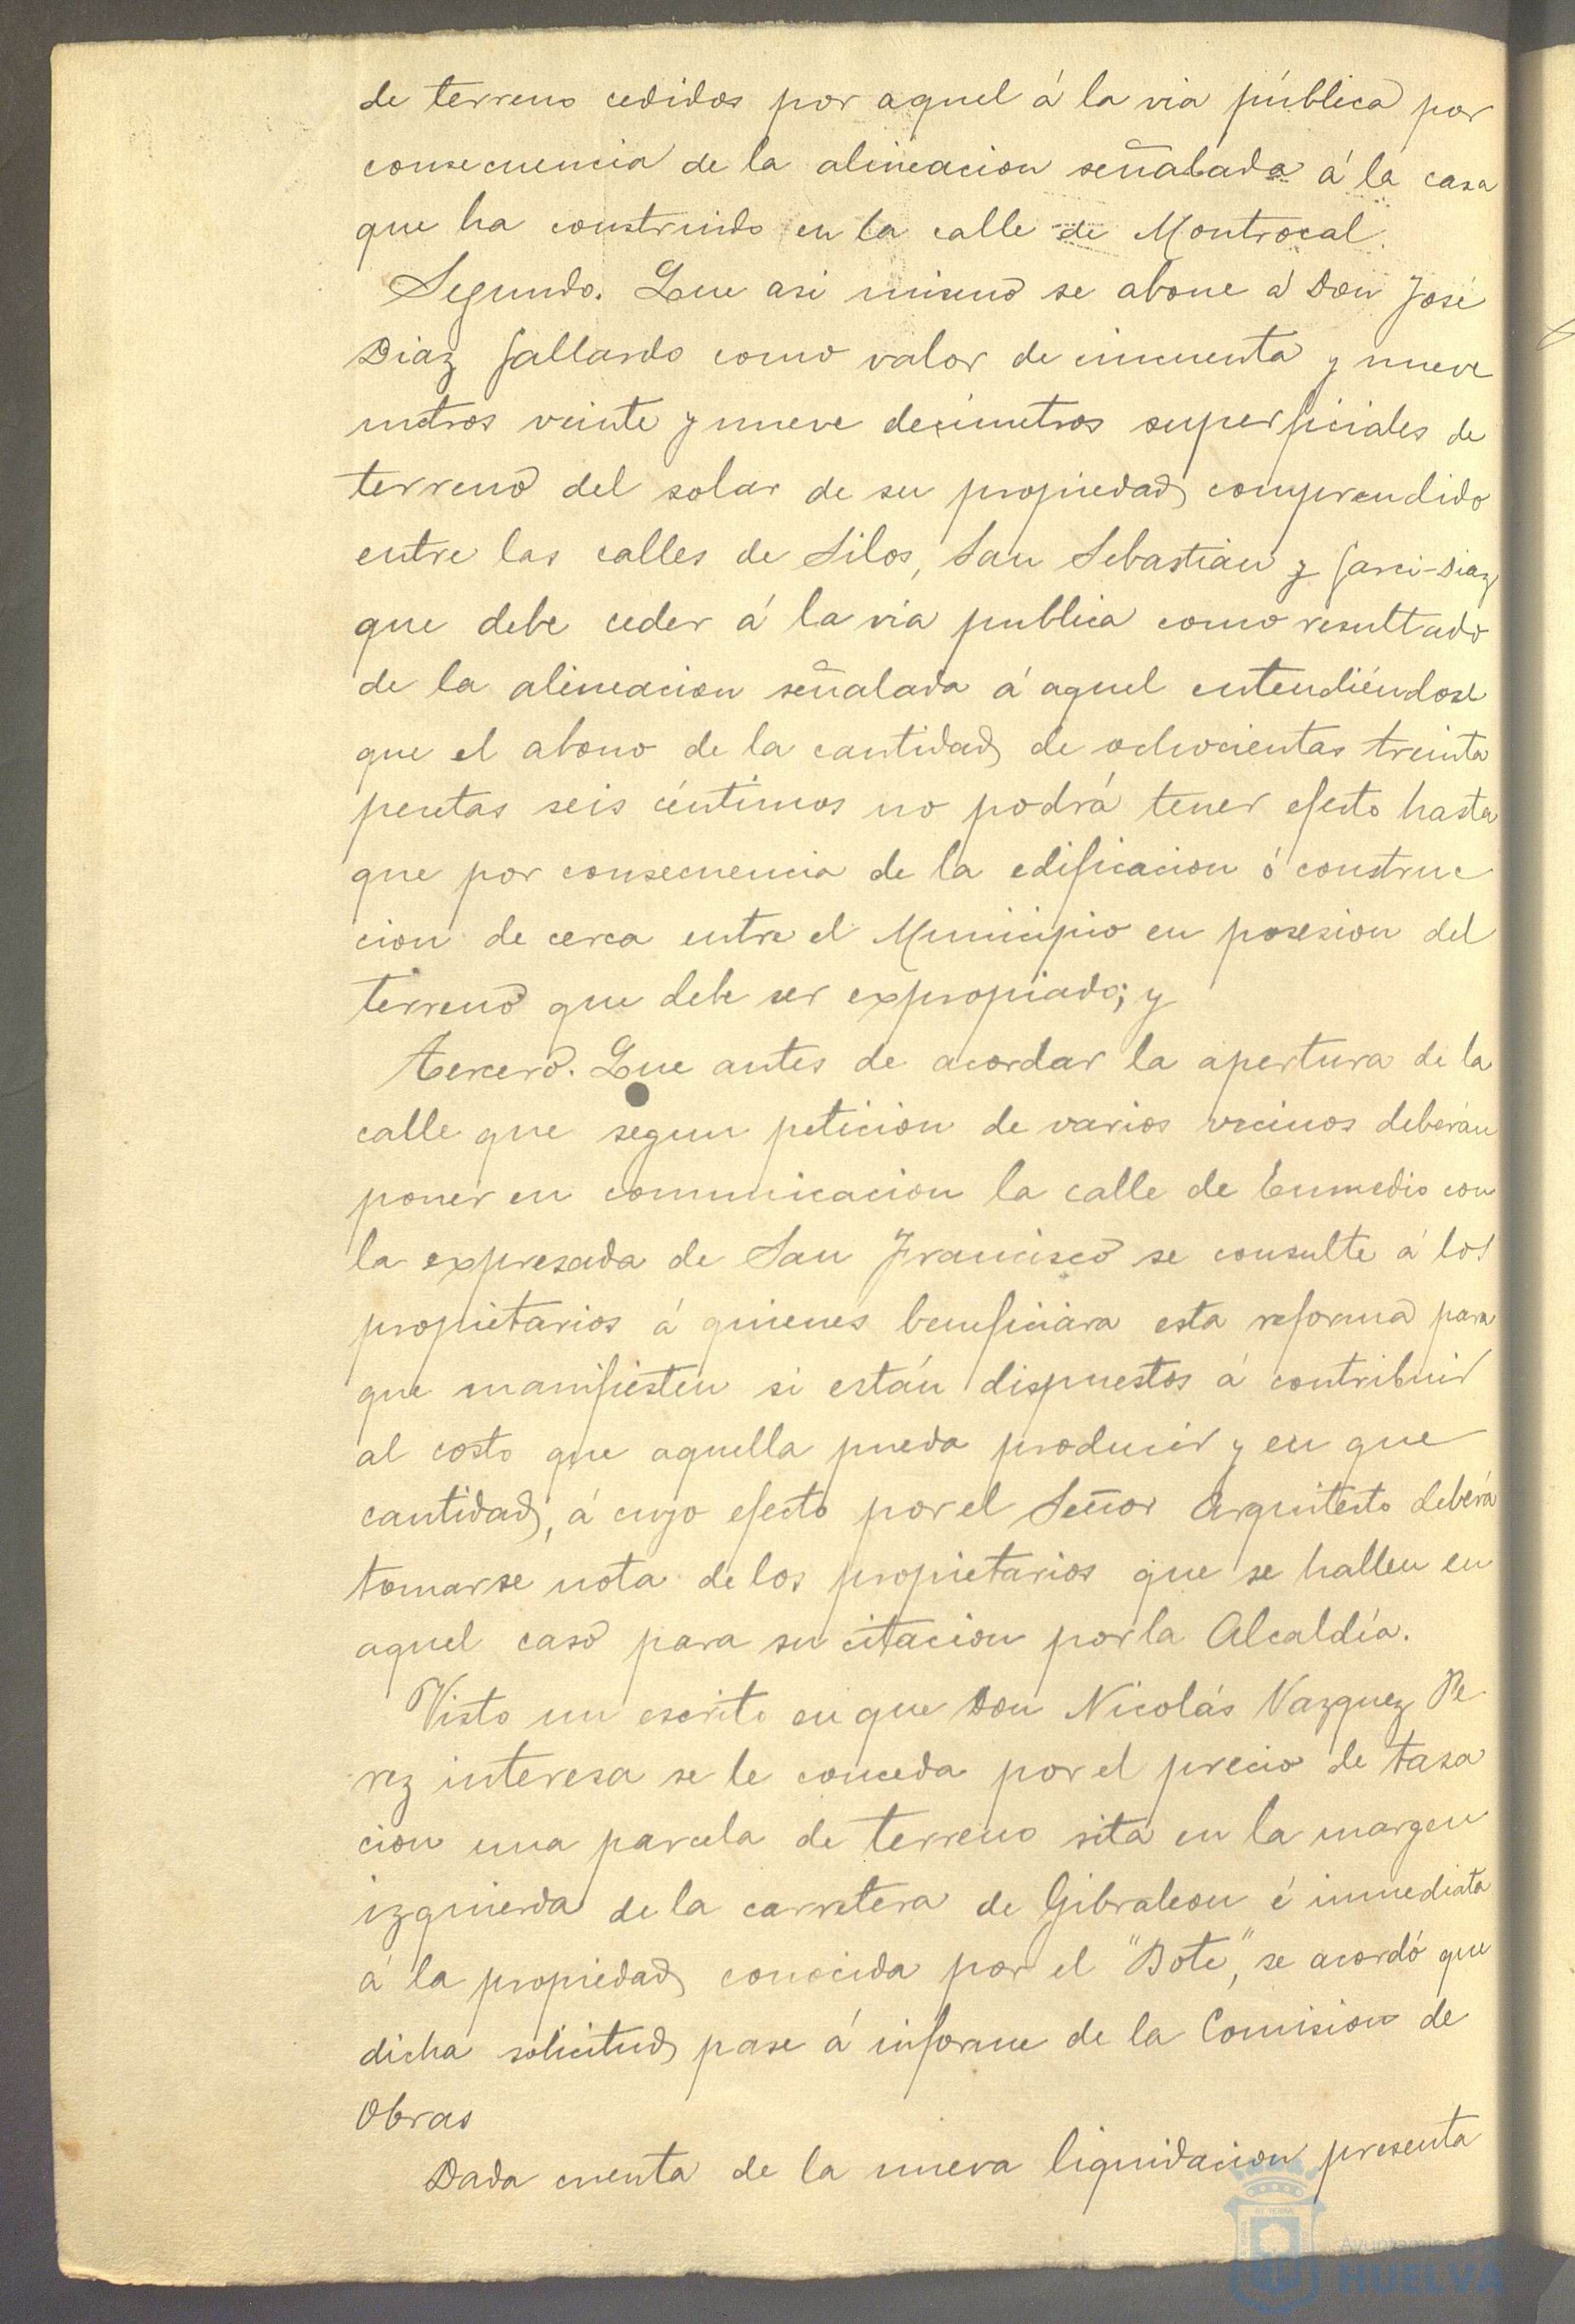 de terreno cedidos por aquel á la via pública por
consecuencia de la alineacion señalada á la casa
que ha construido en la calle de Montrocal.
Segundo. Que asi mismo se abone á Don José
Diaz Gallardo como valor de cincuenta y nueve
metros veinte y nueve decimetros superficiales de
terreno del solar de su propiedad comprendido
entre las calles de Silos, San Sebastian y Garci-Diaz
que debe ceder á la via publica como resultado
de la alineacion señalada á aquel entendiéndose
que el abono de la cantidad de ochocientas treinta
pesetas seis céntimos no podrá tener efecto hasta
que por consecuencia de la edificacion ó construc
cion de cerca entre el Municipio en posesion del
terreno que debe ser expropiado; y
Tercero. Que antes de acordar la apertura de la
calle que segun peticion de varios vecinos deberán
poner en comunicacion la calle de Enmedio con
la expresada de San Francisco se consulte á los
propietarios á quienes beneficiara esta reforma para
que manifiesten si están dispuestos á contribuir
al costo que aquella pueda producir y en que
cantidad, á cuyo efecto por el Señor Arquitecto deberá
tomarse nota de los propietarios que se hallen en
aquel caso para su citacion por la Alcaldía.
Visto un escrito en que Don Nicolás Vazquez Pe
rez interesa se le conceda por el precio de tasa
cion una parcela de terreno sita en la margen
izquierda de la carretera de Gibraleon é inmediata
á la propiedad conocida por el "Bote", se acordó que
dicha solicitud pase á informe de la Comision de
Obras
Dada cuenta de la nueva liquidacion presenta
HUELVA